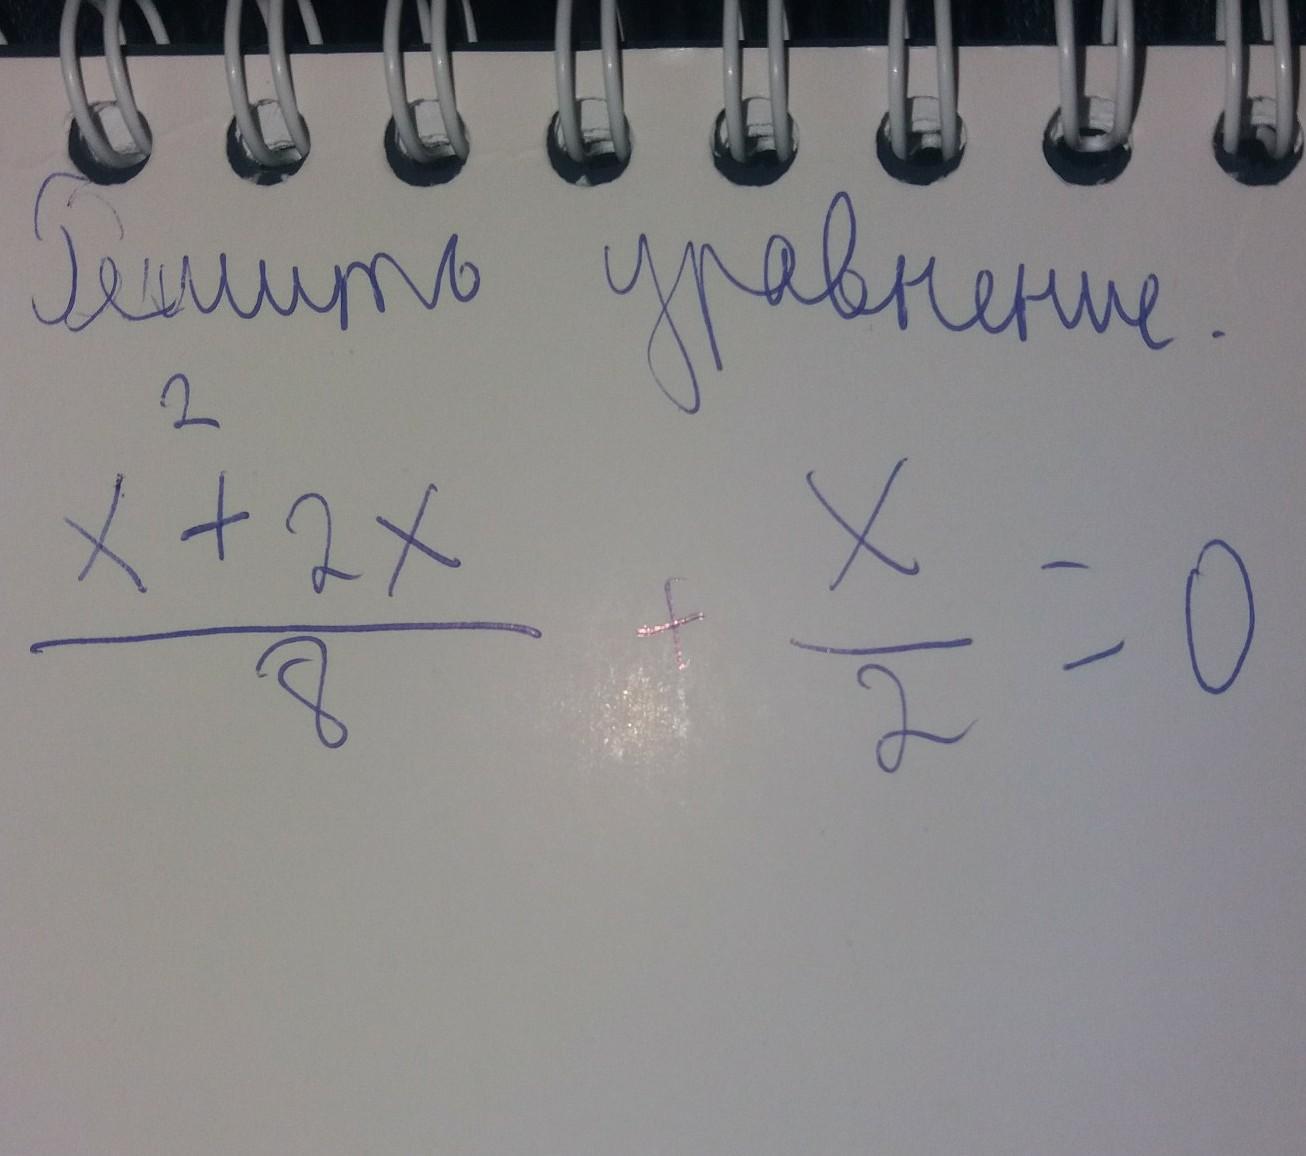 Решить уравнение.
x² + 2x / 8 + x / 2 = 0